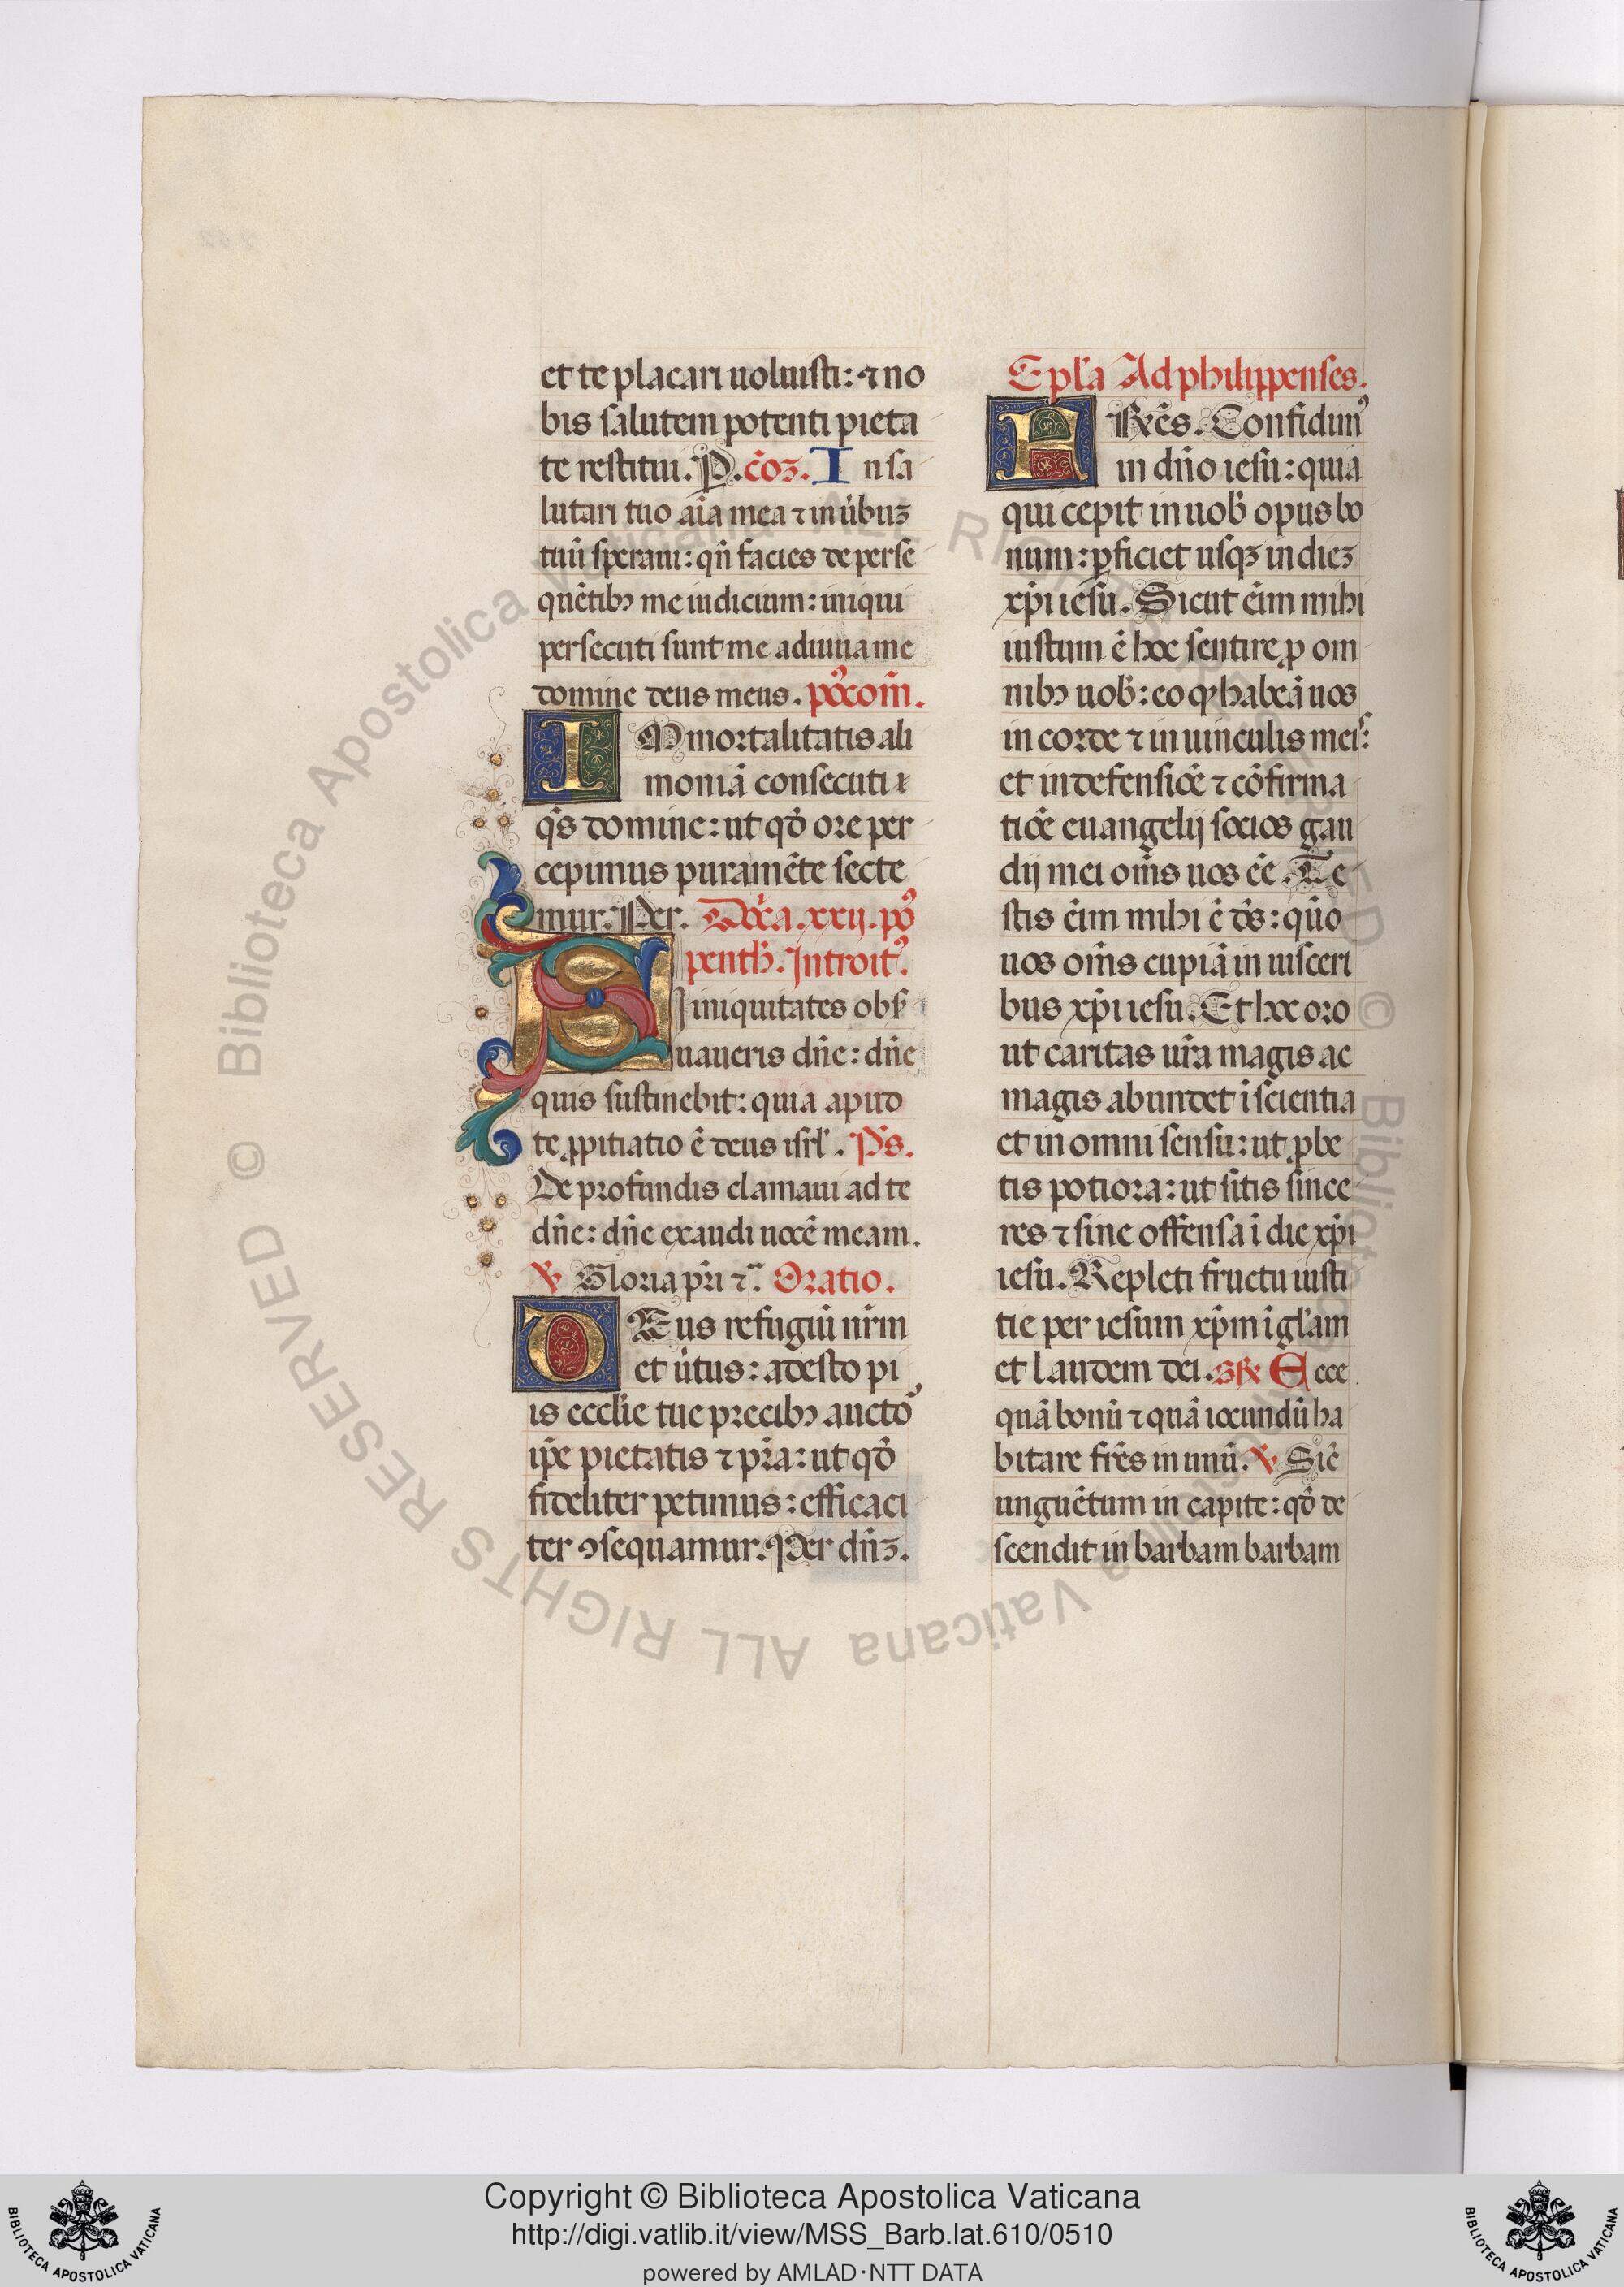 et te placari uoluisti: ⁊ no
bis salutem potenti pieta
te restitui. P. cōꝫ. In sa
lutari tuo aīa mea ⁊ in ūbuꝫ
tuū speraui: qn̄ facies de perse
quētibꝫ me iudicium: iniqui
persecuti sunt me adiuua me
domine deus meus. pꝰcom̄.
IMmortalitatis ali
moniā consecuti
qs̄ domine: ut qd̄ ore per
cepimus pura mēte secte
mur. Per. Dn̄ca. xxij. pꝰ
penth̄. Introitꝰ.
SI iniquitates obs̄
uaueris dn̄e: dn̄e
quis sustinebit: quia apud
te ꝓpitiatio ē deus isrl̄. Ps̄.
De profundis clamaui ad te
dn̄e: dn̄e exaudi uocē meam.
℣ Gloria pr̄i ⁊c̄. Oratio.
DEus refugiū nr̄m
et ūtus: adesto pi
is eccl̄ie tue precibꝫ auctoꝰ
ip̄e pietatis ⁊ pr̄a: ut qd̄
fideliter petimus: efficaci
ter ꝯsequamur. Per dn̄ꝫ.
Epl̄a Ad philippenses.
FRēs. Confidimꝰ
in dn̄o iesu: quia
qui cepit in uob̄ opus bo
num: ꝑficiet usqꝫ in dieꝫ
xp̄i iesu. Sicut ēim mihi
iustum ē hoc sentire ꝓ om
nibꝫ uob̄: eo ꝙ habeā uos
in corde ⁊ in uinculis meis:
et in defensiōe ⁊ cōfirma
tiōe euangelij socios gau
dij mei om̄s uos ēē. Te
stis ēim mihi ē ds̄: qūo
uos om̄s cupiā in uisceri
bus xp̄i iesu. Et hoc oro
ut caritas ur̄a magis ac
magis abundet ī scientia
et in omni sensu: ut ꝓbe
tis potiora: ut sitis since
res ⁊ sine offensa ī die xp̄i
iesu. Repleti fructu iusti
tie per iesum xp̄m ī gl̄am
et laudem dei. GR̄ Ecce
quā bonū ⁊ quā iocundū ha
bitare fr̄es in unū. ℣ Sic̄
unguētum in capite: qd̄ de
scendit in barbam barbam
© Biblioteca Apostolica Vaticana ALL RIGHTS RESERVED © Biblioteca Apostolica Vaticana ALL RIGHTS RESERVED
Copyright © Biblioteca Apostolica Vaticana
http://digi.vatlib.it/view/MSS_Barb.lat.610/0510
powered by AMLAD･NTT DATA
BIBLIOTECA APOSTOLICA VATICANA
BIBLIOTECA APOSTOLICA VATICANA